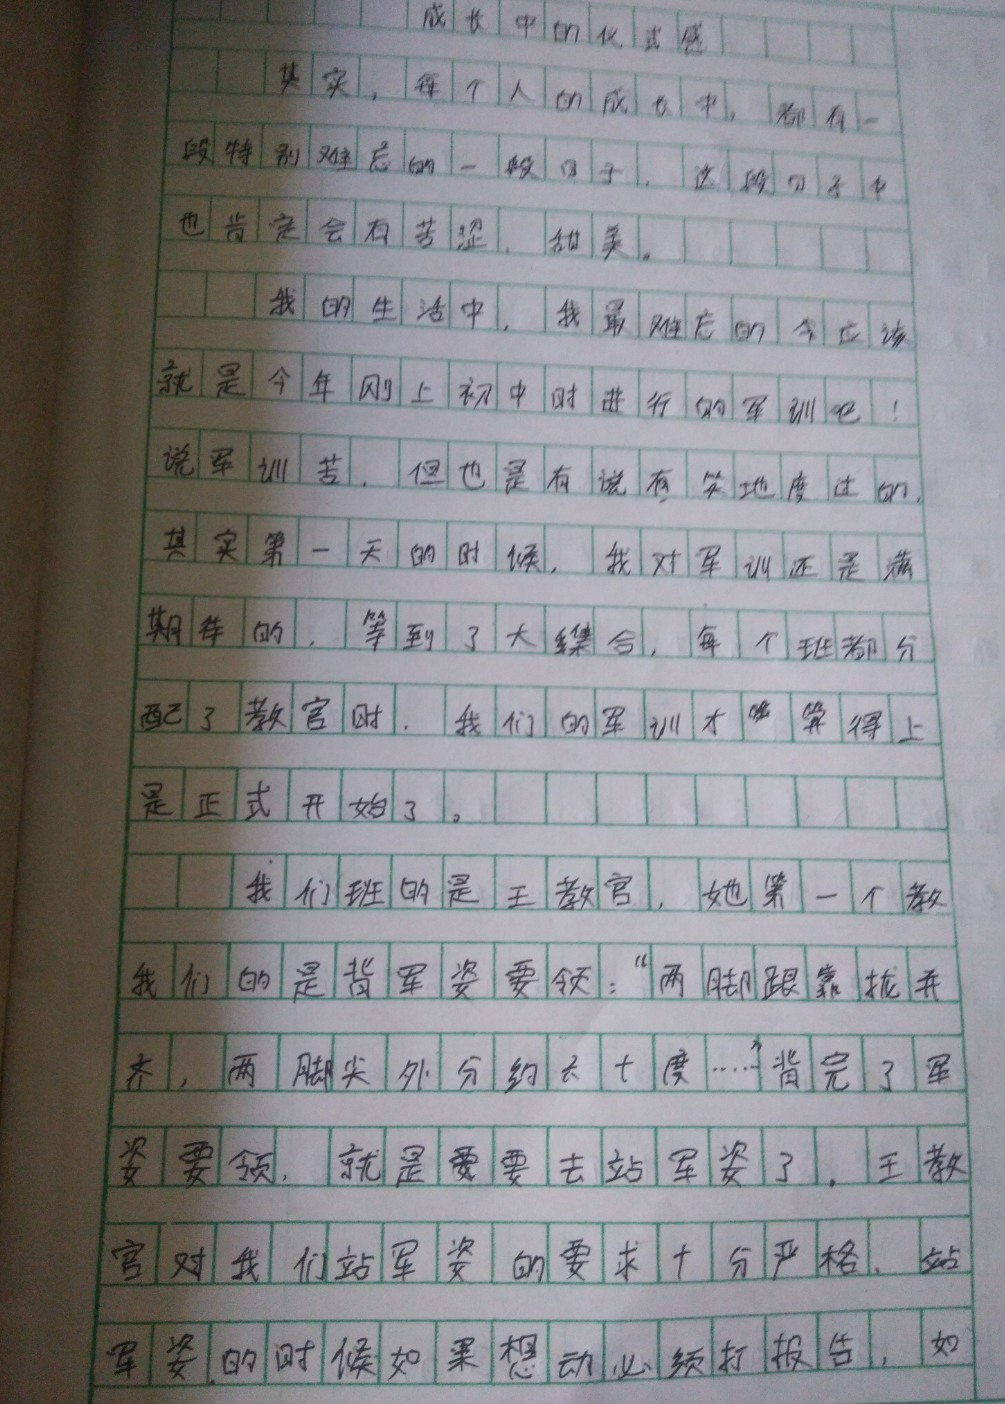 成长中的仪式感
其实，每个人的成长中，都有一
段特别难忘的一段日子，这段日子中
也肯定会有苦涩，甜美。
我的生活中，我最难忘的今应该
就是今年刚上初中时进行的军训吧！
说军训苦，但也是有说有笑地度过的，
其实第一天的时候，我对军训还是满
期待的，等到了大集合，每个班都分
配了教官时，我们的军训才算得上
是正式开始了。
我们班的是王教官，她第一个教
我们的是背军姿要领：“两脚跟靠拢并
齐，两脚尖外分约六十度……”背完了军
姿要领，就是要去站军姿了，王教
官对我们站军姿的要求十分严格，站
军姿的时候如果想动必须打报告，如